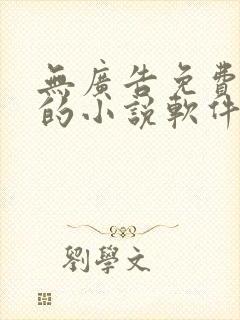 無廣告免費
的小說軟件
劉學文